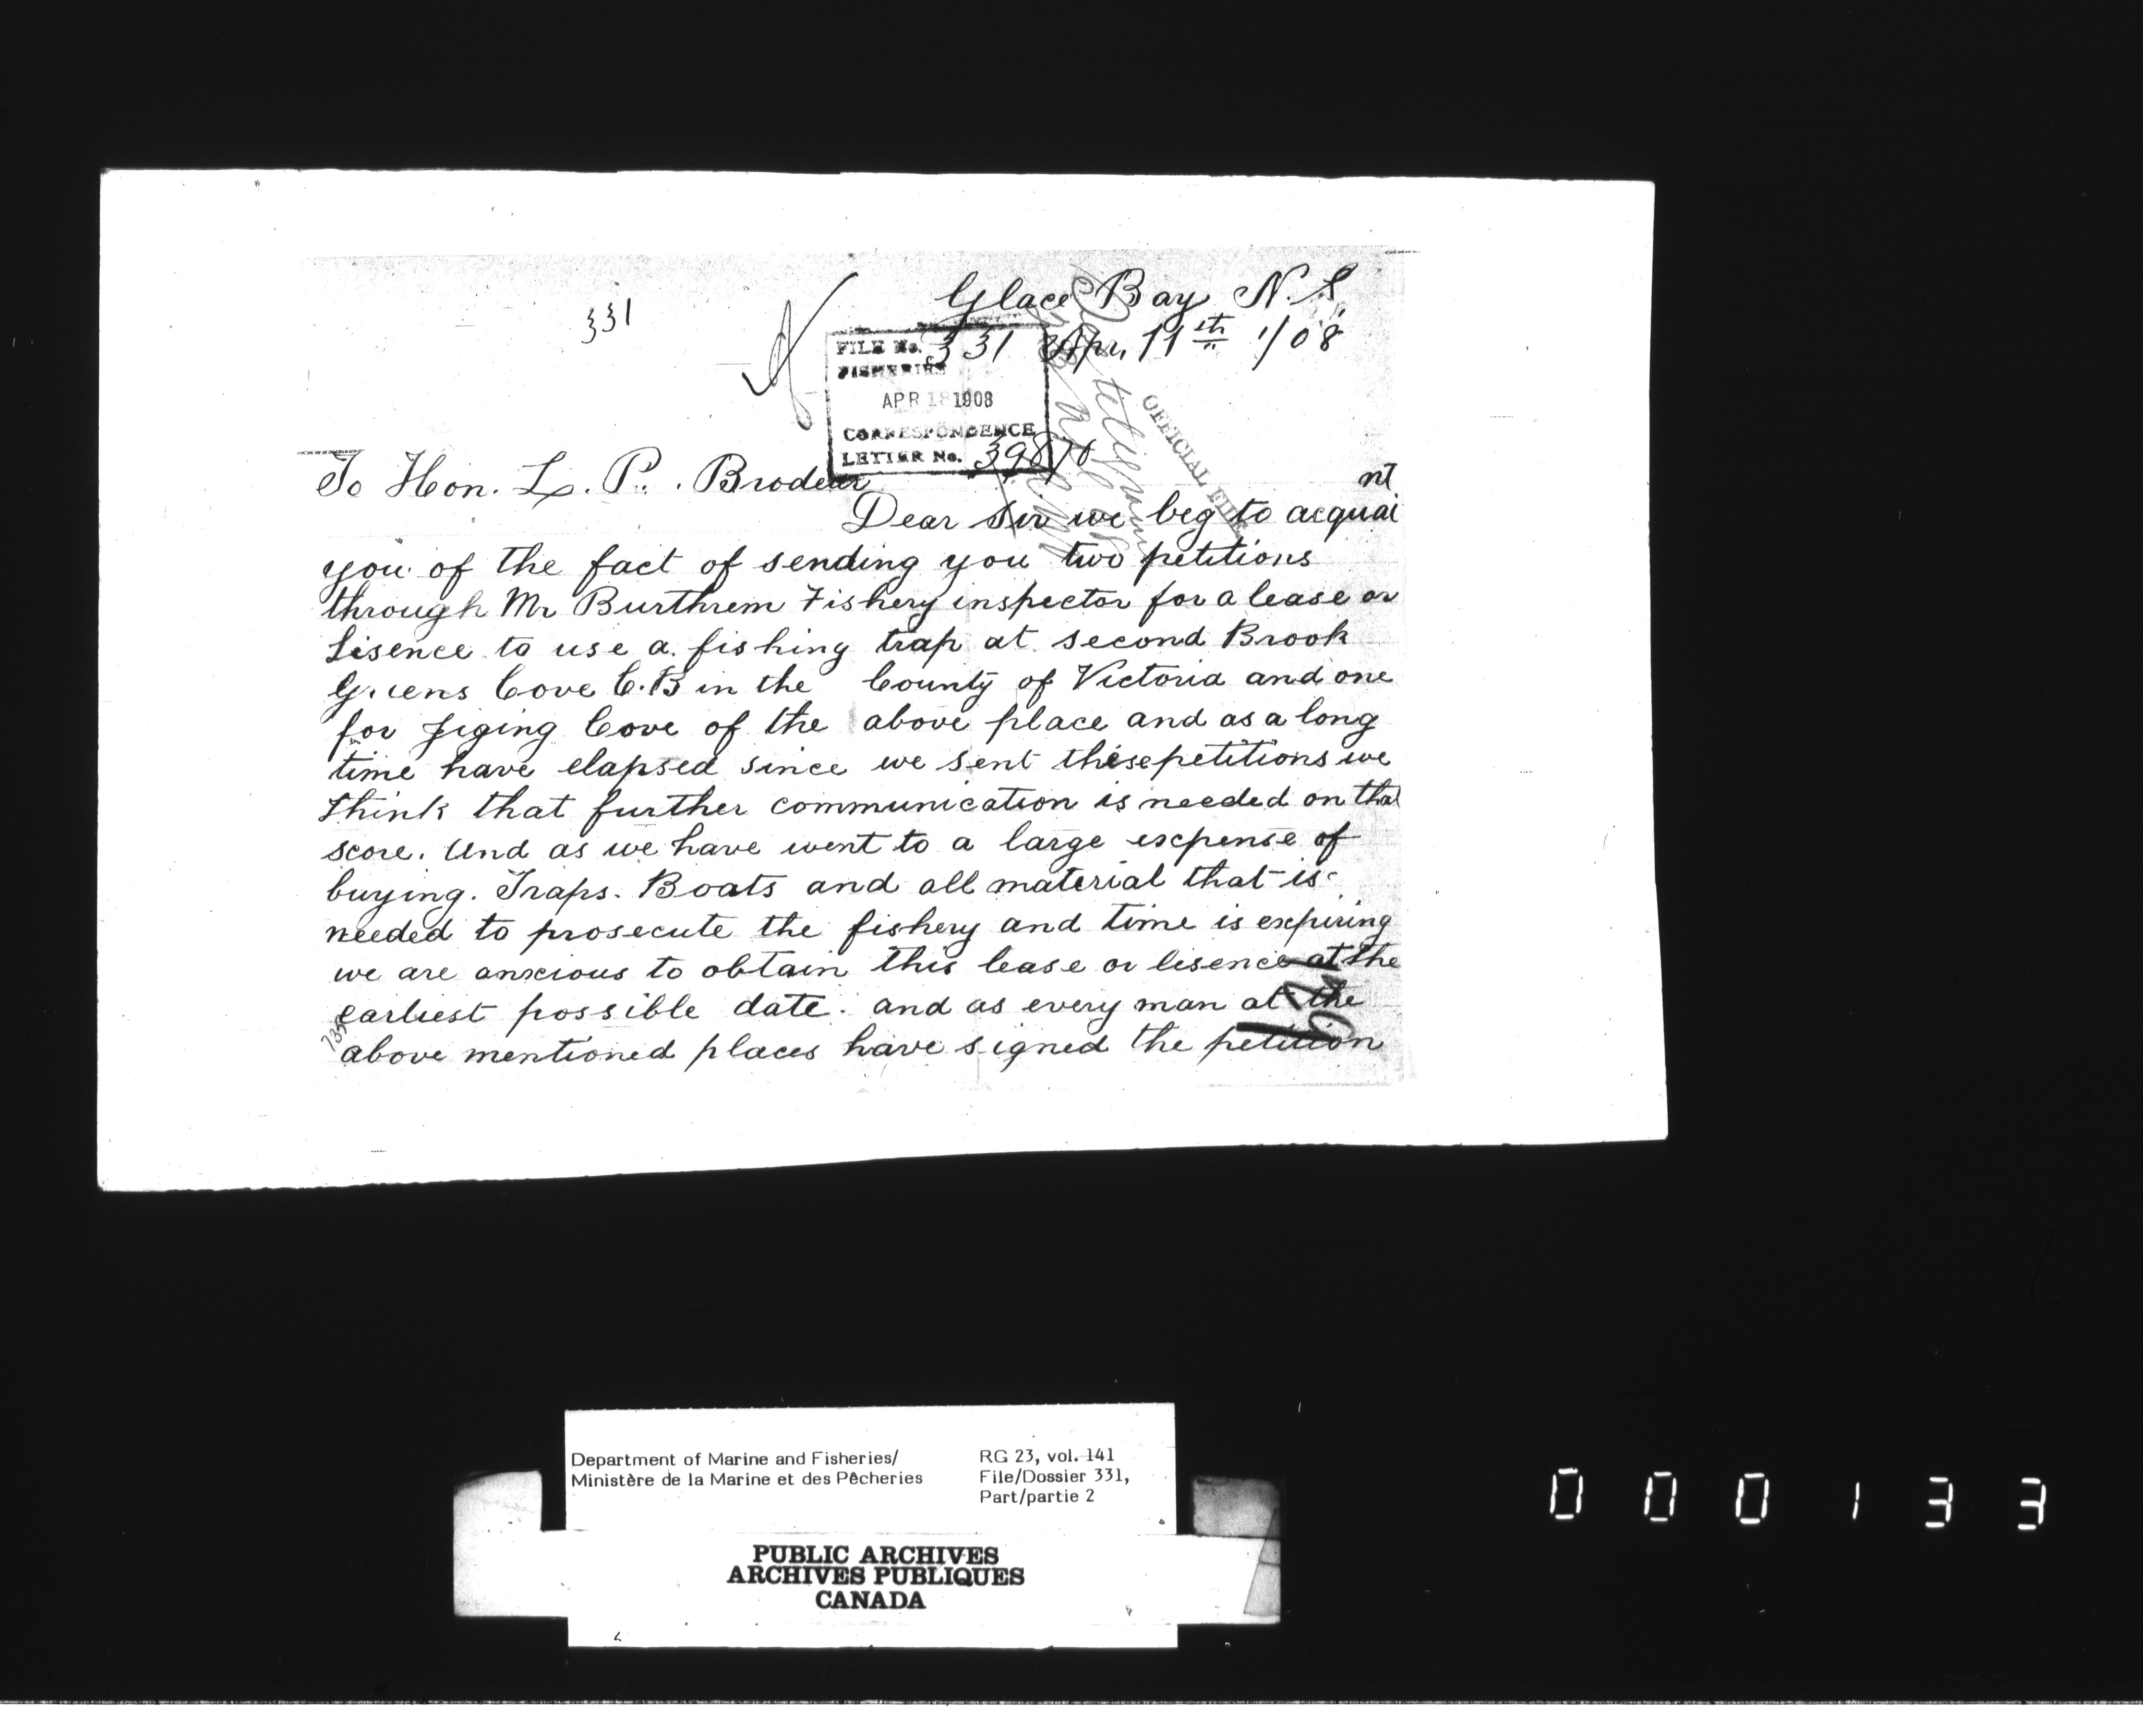 331
Glace Bay N.S
Apr. 11th 1/08
FILE No. 331
FISHERIES
APR 18 1908
CORRESPONDENCE
LETTER No. 39870
OFFICIAL FILE
telegram
To Hon. L. P. Brodeur
nt
Dear Sir we beg to acquai
you of the fact of sending you two petitions
through Mr Burthrem Fishery inspector for a lease or
Lisence to use a. fishing trap at second Brook
Griens Cove C.B in the County of Victoria and one
for Jiging Cove of the above place and as a long
time have elapsed since we sent these petitions we
think that further communication is needed on that
score. And as we have went to a large expense of
buying. Traps. Boats and all material that is
needed to prosecute the fishery and time is expiring
we are anxcious to obtain this lease or lisence at the
earliest possible date. and as every man at the
above mentioned places have signed the petition
Department of Marine and Fisheries/
Ministère de la Marine et des Pêcheries
RG 23, vol. 141
File/Dossier 331,
Part/partie 2
PUBLIC ARCHIVES
ARCHIVES PUBLIQUES
CANADA
000133